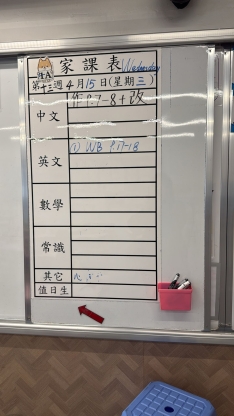 家課表 Wednesday
第十三週 4月15日(星期三)
中文 作 P.7-8+改
英文 ① WB P.17-18
數學
常識
其它
值日生